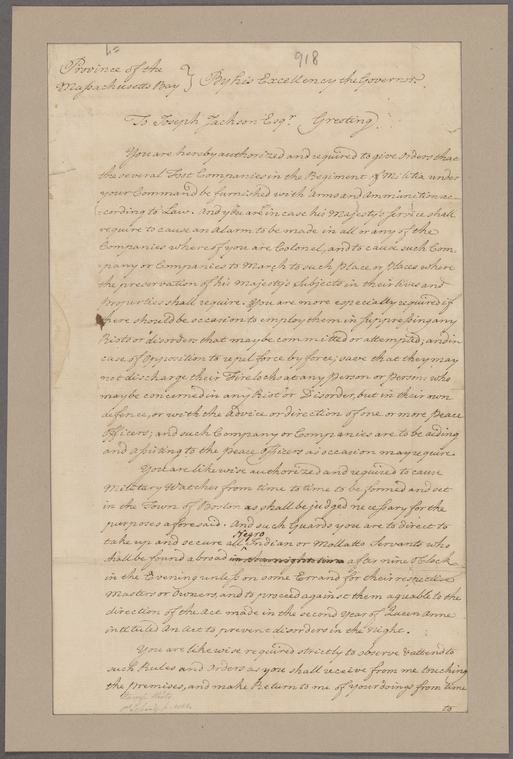 918
Province of the
Massachusetts Bay } By his Excellency the Governor.
To Joseph Jackson Esqr. Greeting.
You are hereby authorized and required to give Orders that
the several Foot Companies in the Regiment of Militia under
your Command be furnished with Arms and Ammunition ac-
-cording to Law. And you are in case his Majesty's Service shall
require to cause an Alarm to be made in all or any of the
Companies whereof you are Colonel, and to cause such Com-
pany or Companies to March to such Place or Places where
the preservation of his Majesty's Subjects in their Lives and
Properties shall require. You are more especially required if
there should be occasion to employ them in suppressing any
Riots or disorders that may be committed or attempted; and in
case of Opposition to repel force by force; save that they may
not discharge their Firelocks at any person or persons who
may be concerned in any Riot or Disorder, but in their own
defence, or with the Advice or direction of one or more Peace
Officers; and such Company or Companies are to be aiding
and assisting to the Peace Officers as occasion may require.
You are likewise authorized and required to cause
Military Watches from time to time to be formed and set
in the Town of Boston as shall be judged necessary for the
purposes aforesaid. And such Guards you are to direct to
take up and secure all Negro Indian or Mollatto Servants who
shall be found abroad in the night time after nine o'Clock
in the Evening unless on some Errand for their respective
Masters or Owners, and to proceed against them agreable to the
direction of the Act made in the second Year of Queen Anne
intituled An Act to prevent disorders in the Night.
You are likewise required strictly to observe & attend to
such Rules and Orders as you shall receive from me touching
the premises, and make Return to me of your doings from time
to